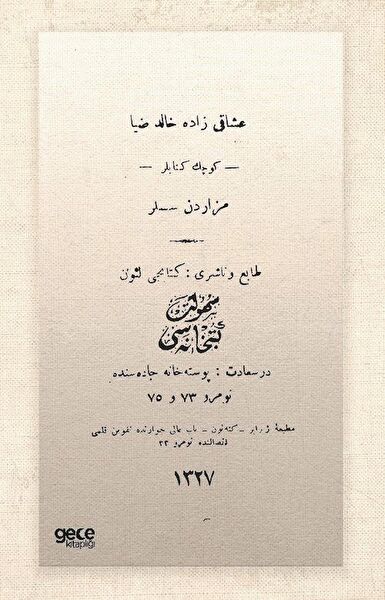 عشاقی زاده خالد ضیا
— کوچك کتابلر —
مزاردن سسلر
طابع و ناشری : کتابجی لئون
سهولت
کتبخانه سی
درسعادت : پوسته خانه جاده سنده
نومرو ۷۳ و ۷۵
مطبعۀ — باب عالی جوارنده
نومرو ۲۲
۱۳۲۷
gece
kitaplığı